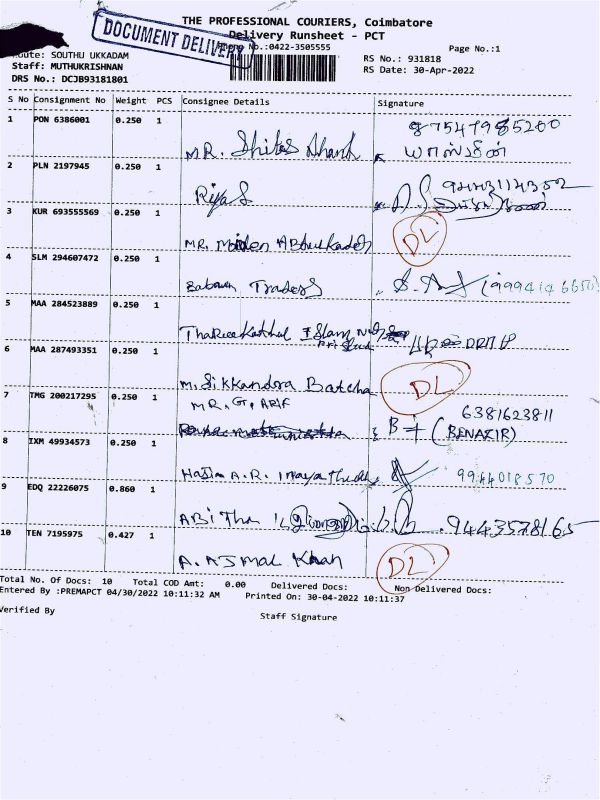 THE PROFESSIONAL COURIERS, Coimbatore
Delivery Runsheet - PCT
DOCUMENT DELIVERY
Phone No.:0422-3505555
Page No.:1
Route: SOUTHU UKKADAM
RS No.: 931818
Staff: MUTHUKRISHNAN
RS Date: 30-Apr-2022
DRS No.: DCJB93181801
S No Consignment No Weight PCS Consignee Details Signature
1 PON 6386001 0.250 1
87547985200
MR.
யாஸ்மின்
2 PLN 2197945 0.250 1
9443114352
Riya S
3 KUR 693555569 0.250 1
DL
MR. Moiden Abdulkader
4 SLM 294607472 0.250 1
Traders
5 MAA 284523889 0.250 1
Islam
6 MAA 287493351 0.250 1
M. Sikkandra Batcha DL
7 TMG 200217295 0.250 1
MR. G. ARIF
6381623811
(BENAZIR)
8 IXM 49934573 0.250 1
Hajim A.R. 9944018570
9 EDQ 22226075 0.860 1
ABi Tha 9443578165
10 TEN 7195975 0.427 1
A. AJMAL Khan DL
Total No. Of Docs: 10 Total COD Amt: 0.00 Delivered Docs: Non Delivered Docs:
Entered By :PREMAPCT 04/30/2022 10:11:32 AM Printed On: 30-04-2022 10:11:37
Verified By
Staff Signature